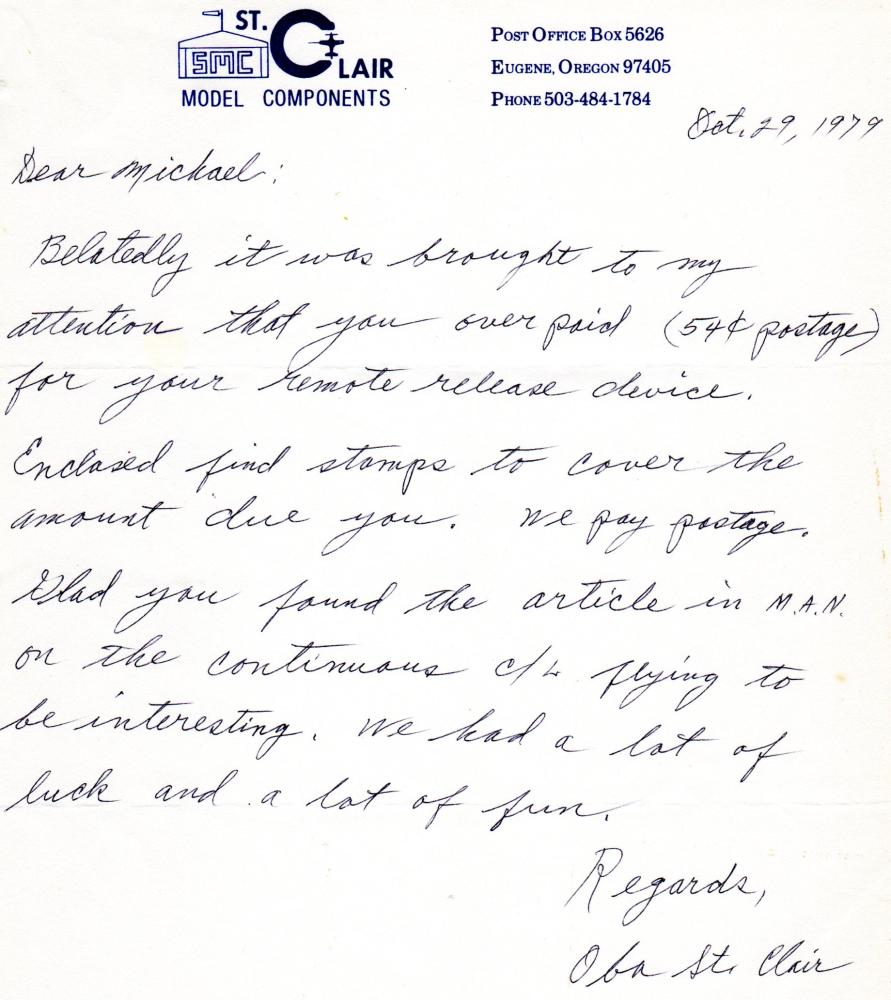 ST. CLAIR
SMC
MODEL COMPONENTS
POST OFFICE BOX 5626
EUGENE, OREGON 97405
PHONE 503-484-1784
Oct. 29, 1979
Dear Michael:
Belatedly it was brought to my
attention that you over paid (54¢ postage)
for your remote release device.
Enclosed find stamps to cover the
amount due you. We pay postage.
Glad you found the article in M.A.N.
on the continuous c/L flying to
be interesting. We had a lot of
luck and a lot of fun.
Regards,
Oba St. Clair